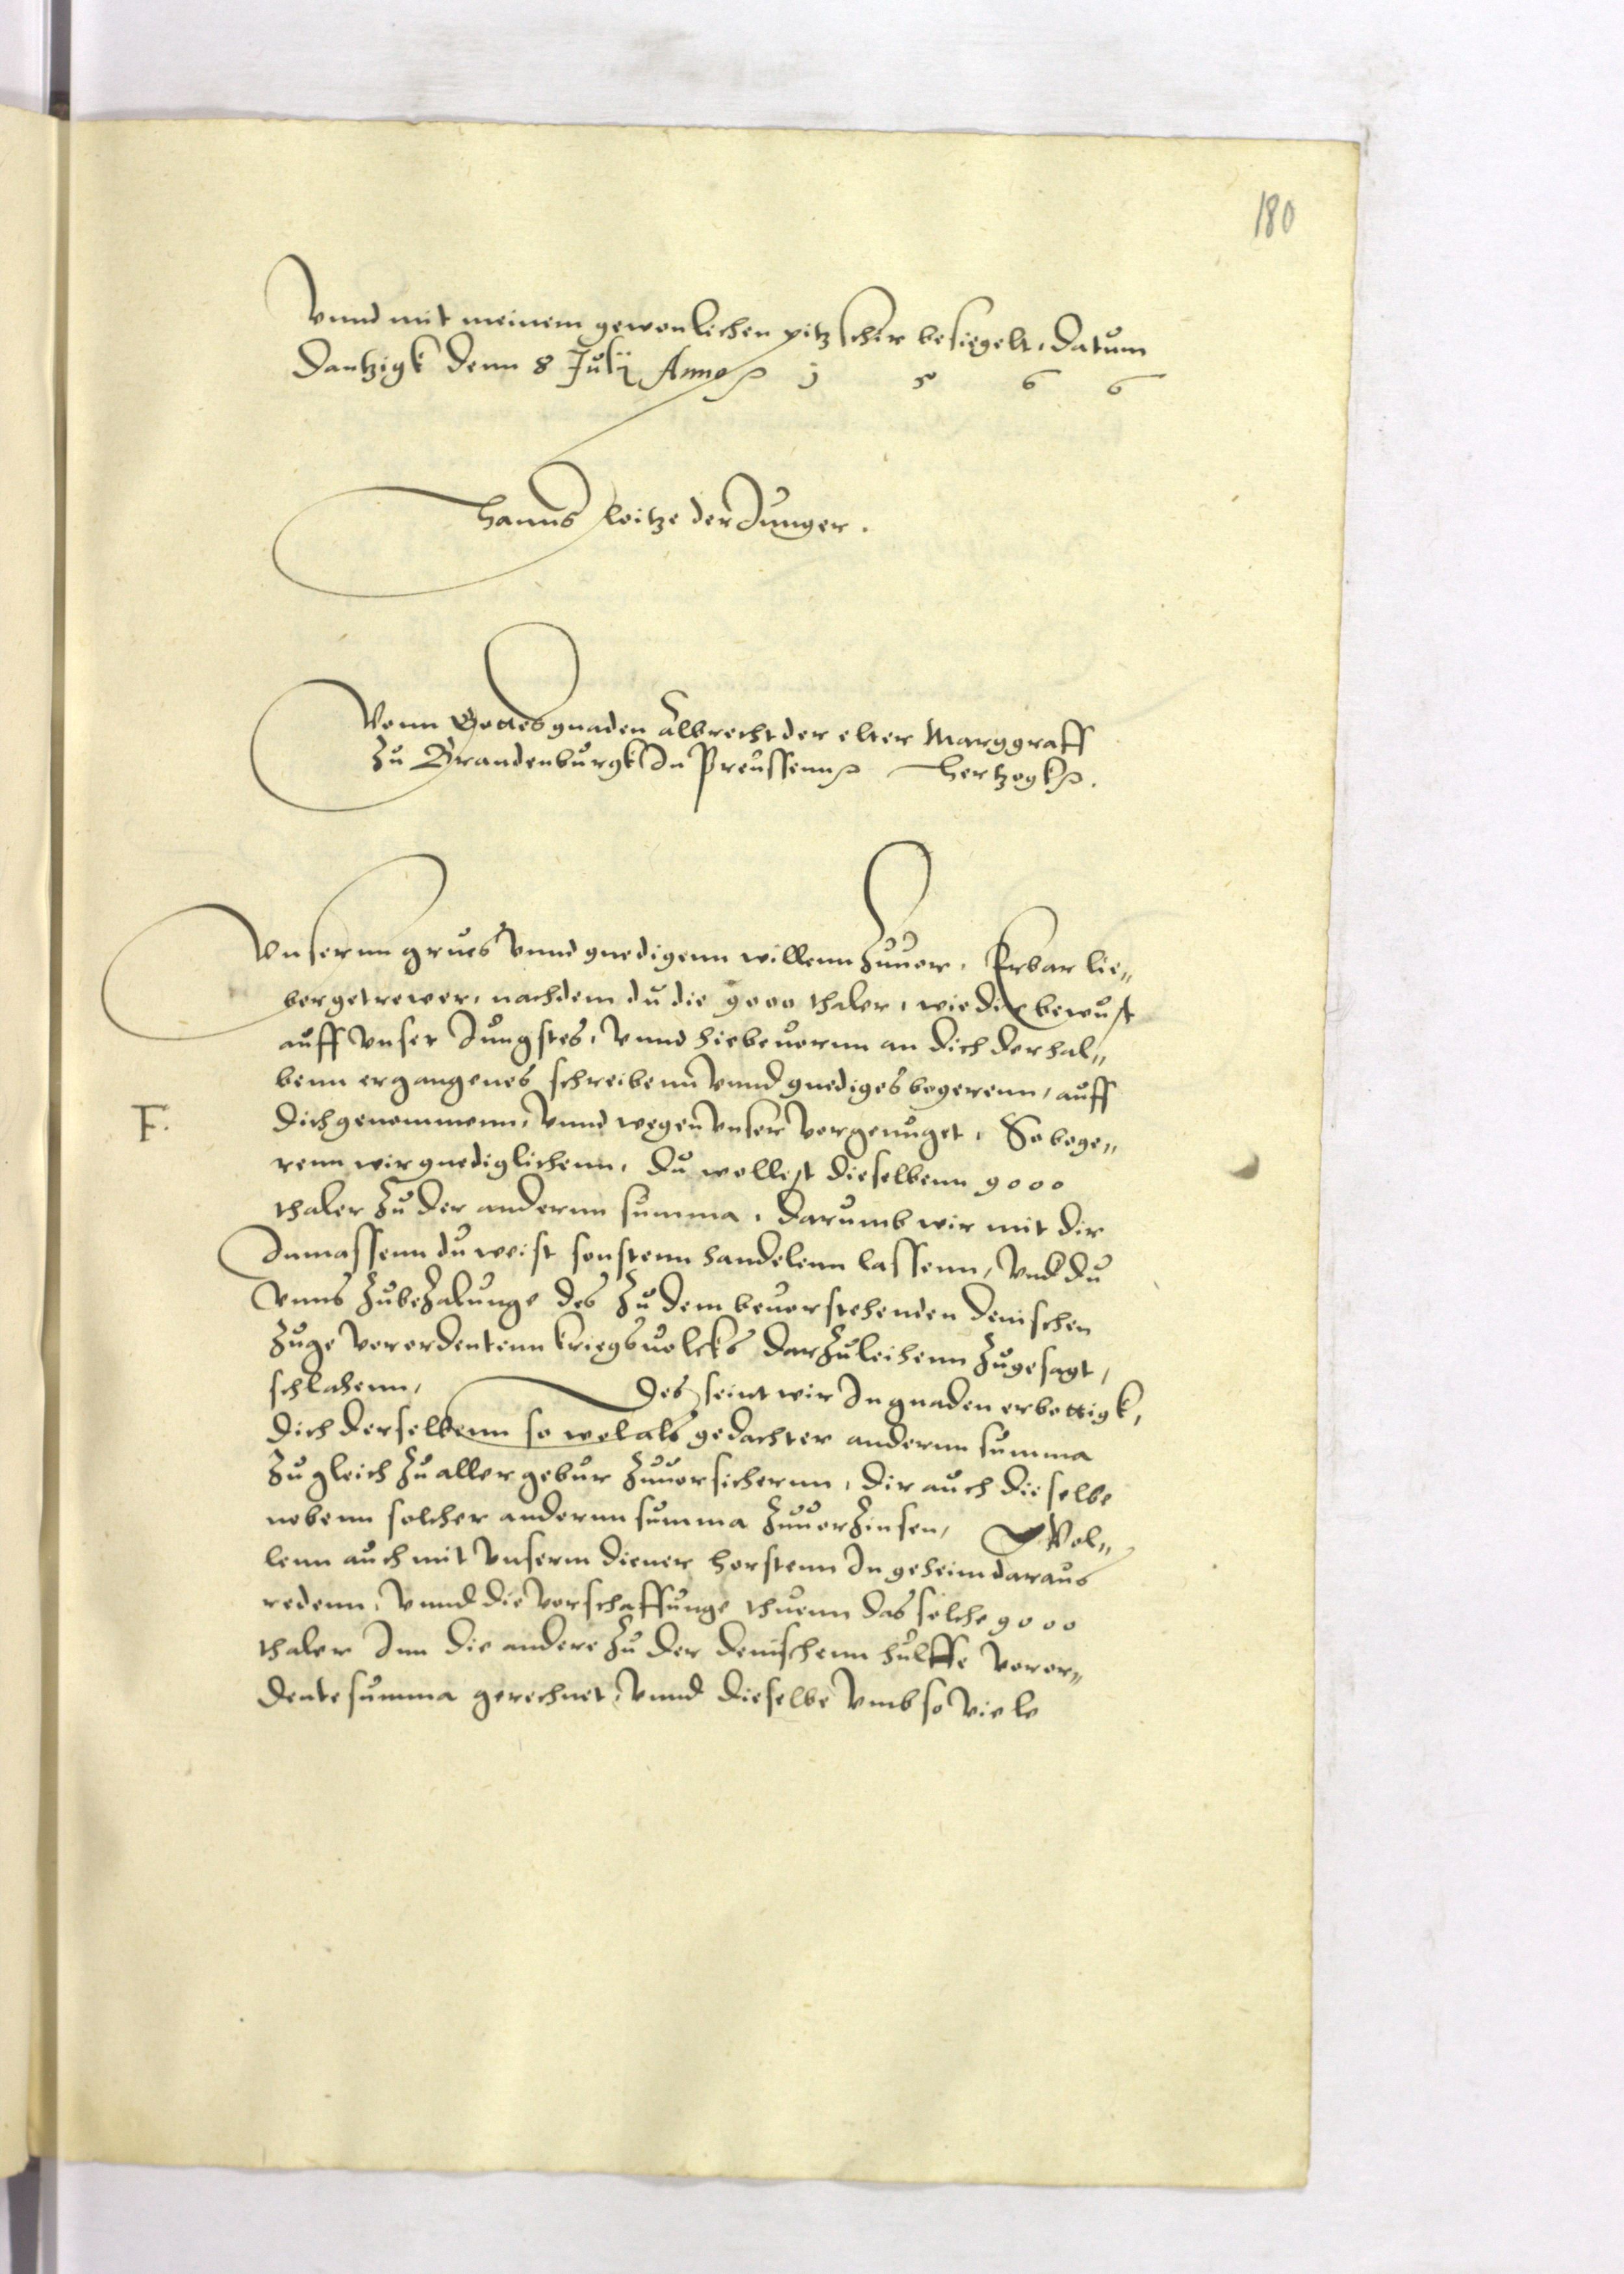 180
Vnnd mit meinem gewonlichen pitzschir besiegelt, datum
Dantzigk denn 8 Julij Anno 1 5 6 6
Hanns Loitze der Junger.
Vonn Gottes gnaden Albrecht der elter Marggraff
zu Brandenburgk In Preussenn Hertzogk.
Vnsernn grues vnnd gnedigenn willenn zuuor, Erbar lie„
ber getrewer, nachdem du die 9000 thaler, wie dir bewust
auff vnser Jungstes, vnnd hiebeuornn an dich derhal„
benn ergangenes schreibenn vnnd gnediges begerenn, auff
F.
dich genommenn, vnnd wegen vnser vorgenuget, So bege„
renn wir gnediglichenn, du wollest dieselbenn 9000
thaler zu der andernn summa, darumb wir mit dir
Inmassenn du weist sonstenn handelenn lassenn, vnd du
vnns zubezalunge des zu dem beuorstehenden denischen
zuge verordentenn kriegsuolcks darzuleihenn zugesagt,
schlahenn, Des seint wir In gnaden erbottigk,
dich derselbenn so wol als gedachter andernn summa
zugleich zu aller gebur zuuorsichernn, dir auch dieselbe
nebenn solcher andernn summa zuuorzinsen, Wol„
lenn auch mit vnserm diener Horstenn In geheim daraus
redenn, vnnd die vorschaffunge thuenn das solche 9000
thaler Inn die andere zu der denischenn hulffe voror„
dente summa gerechnet, vnnd dieselbe vmb so viele